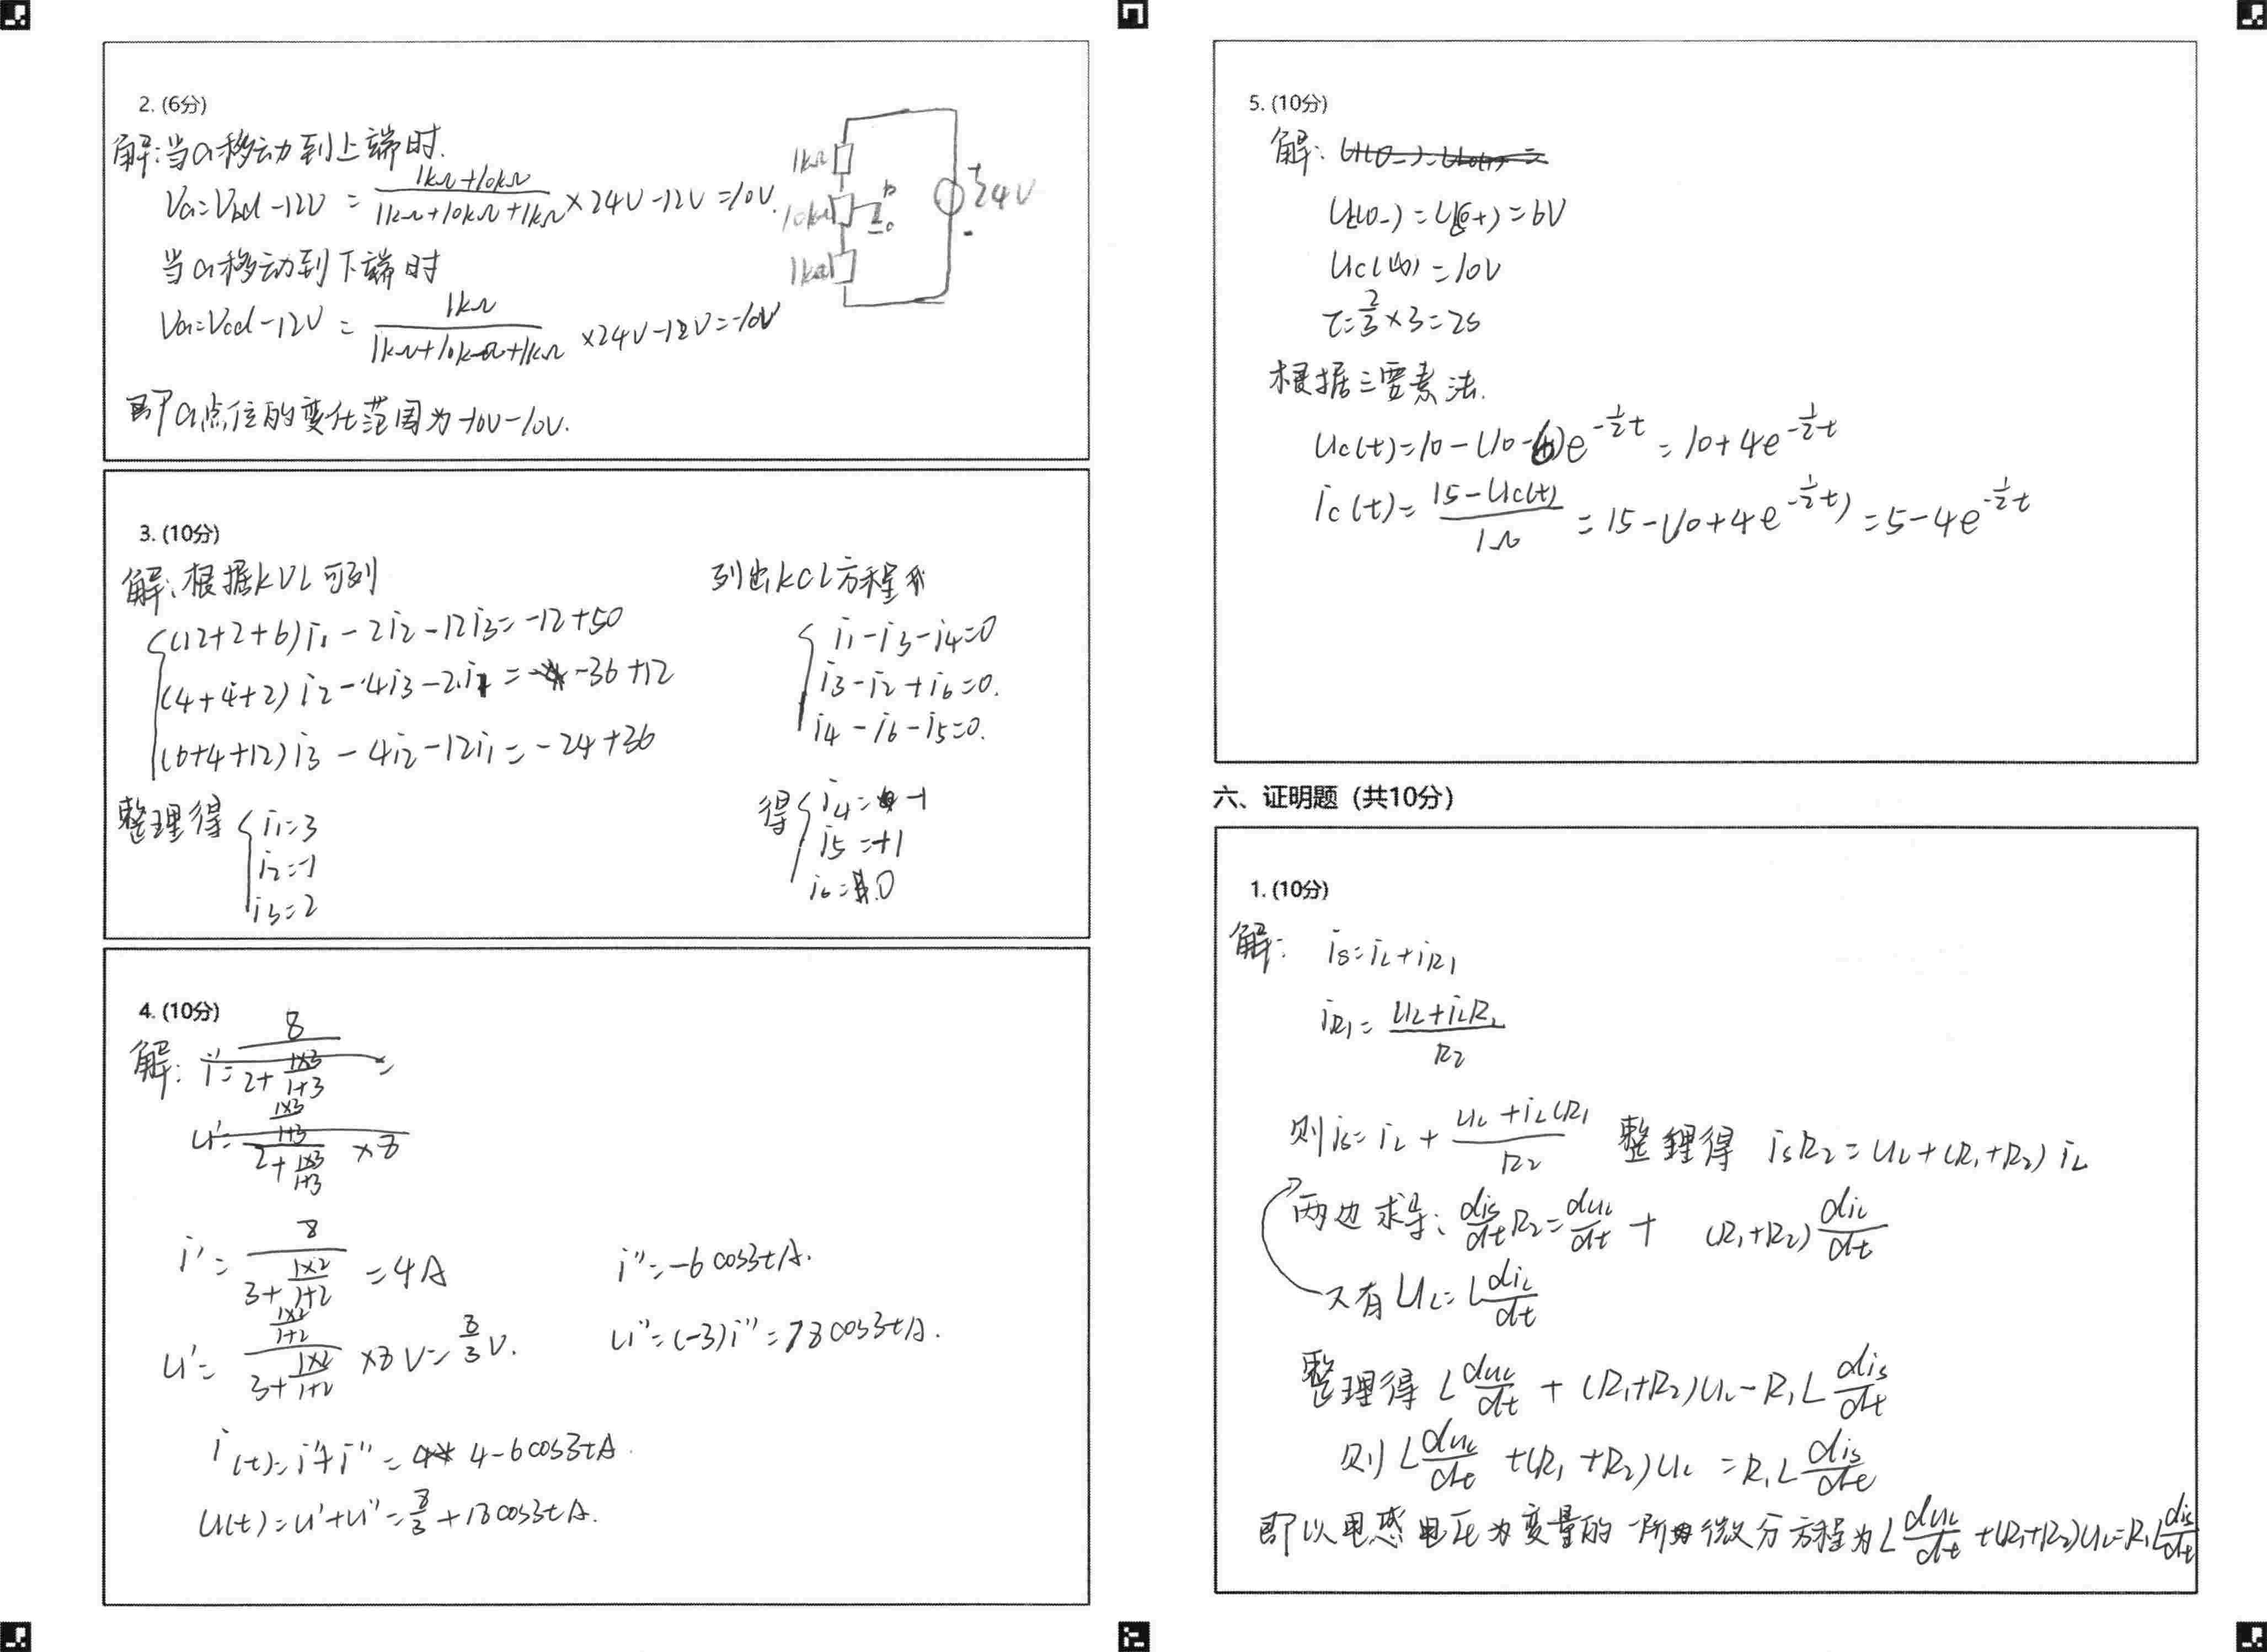 2. (6分)
解:当a移动到上端时.
Va=Vbd-12V = (1kΩ+10kΩ)/(1kΩ+10kΩ+1kΩ)×24V-12V=10V.
当a移动到下端时
Va=Vcd-12V = 1kΩ/(1kΩ+10kΩ+1kΩ) ×24V-12V=-10V
即a点位的变化范围为-10V-10V.
1kΩ
10kΩ
b
c
1kΩ
+
24V
-
3. (10分)
解:根据KVL可列
(12+2+6)i1-2i2-12i3=-12+50
(4+4+2)i2-4i3-2i1=-36+12
(6+4+12)i3-4i2-12i1=-24+36
整理得
i1=3
i2=-1
i3=2
列出KCL方程
i1-i3-i4=0
i3-i2+i6=0.
i4-i6-i5=0.
得
i4=-1
i5=+1
i6=0
4. (10分)
解: i'= 8/(2+(1×3)/(1+3)) =
u'= ((1×3)/(1+3))/(2+(1×3)/(1+3)) ×8
i'= 8/(3+(1×2)/(1+2)) =4A
u'= ((1×2)/(1+2))/(3+(1×2)/(1+2)) ×8V=8/3V.
i''=-6cos3tA.
u''=(-3)i''=18cos3tA.
i(t)=i'+i''= 4-6cos3tA.
u(t)=u'+u''=8/3+18cos3tA.
5. (10分)
解:
Uc(0-)=U(0+)=6V
Uc(∞)=10V
τ=2/3×3=2s
根据三要素法.
Uc(t)=10-(10-6)e^(-1/2t)=10+4e^(-1/2t)
ic(t)=(15-Uc(t))/1Ω=15-(10+4e^(-1/2t))=5-4e^(-1/2t)
六、证明题（共10分）
1. (10分)
解: is=iL+iR1
iR1=(UL+iLR2)/R2
则is=iL+(UL+iL(R1)/R2 整理得 isR2=UL+(R1+R2)iL
两边求导: dis/dt R2=duL/dt + (R1+R2)diL/dt
又有UL=L diL/dt
整理得 L duL/dt+(R1+R2)UL-R1L dis/dt
则 L duL/dt+(R1+R2)UL=R1L dis/dt
即以电感电压为变量的一阶微分方程为L duL/dt+(R1+R2)UL=R1L dis/dt